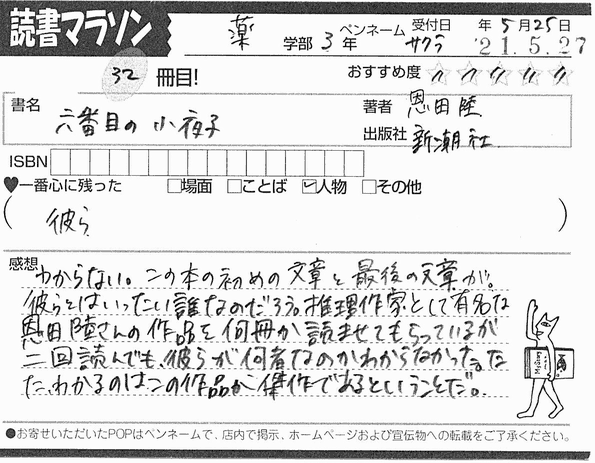 読書マラソン
薬 学部 3 年 ペンネーム サクラ 受付日 年 5 月 25 日
'21.5.27
32 冊目!
おすすめ度 ☆☆☆☆☆
書名 六番目の小夜子
著者 恩田陸
出版社 新潮社
ISBN
♥一番心に残った □場面 □ことば ☑人物 □その他
( 彼ら )
感想
わからない。この本の初めの文章と最後の文章が。
彼らとはいったい誰なのだろう。推理作家として有名な
恩田陸さんの作品を何冊か読ませてもらっているが
二回読んでも、彼らが何者なのかわからなかった。た
だ、わかるのはこの作品が傑作であるということだ。
●お寄せいただいたPOPはペンネームで、店内で掲示、ホームページおよび宣伝物への転載をご了承ください。